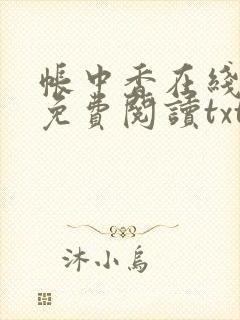 帳中香在綫
免費閱讀txt
沐小烏